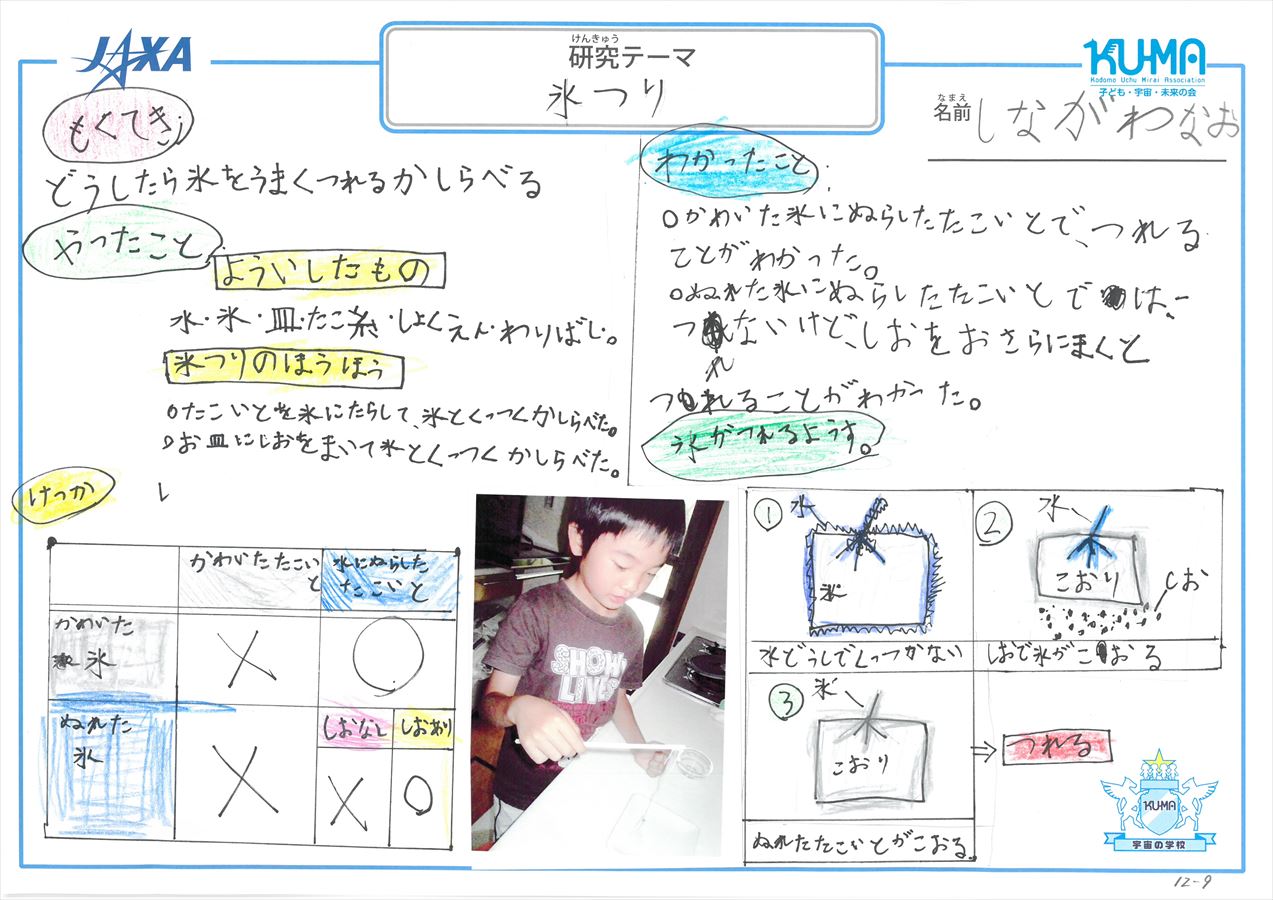 JAXA
けんきゅう
研究テーマ
氷つり
KU-MA
Kodomo Uchu Mirai Association
子ども・宇宙・未来の会
なまえ
名前 しながわなお
もくてき
どうしたら氷をうまくつれるかしらべる
やったこと
よういしたもの
水・氷・皿・たこ糸・しょくえん・わりばし。
氷つりのほうほう
○たこいとを氷にたらして、氷とくっつくかしらべた。
○お皿にしおをまいて氷とくっつくかしらべた。
けっか
かわいたたこいと
水にぬらしたたこいと
かわいた氷
×
○
ぬれた氷
×
しおなし
しおあり
×
○
わかったこと
○かわいた氷にぬらしたたこいとで、つれる
ことがわかった。
○ぬれた氷にぬらしたたこいとでは、
つれないけど、しおをおさらにまくと
つれることがわかった。
氷がつれるようす。
①
水
氷
水どうしでくっつかない
②
水
こおり
しお
しおで氷がこおる
③
氷
こおり
ぬれたたこいとがこおる。
⇒
つれる
SHOW!
LIVE
KUMA
宇宙の学校
12-9